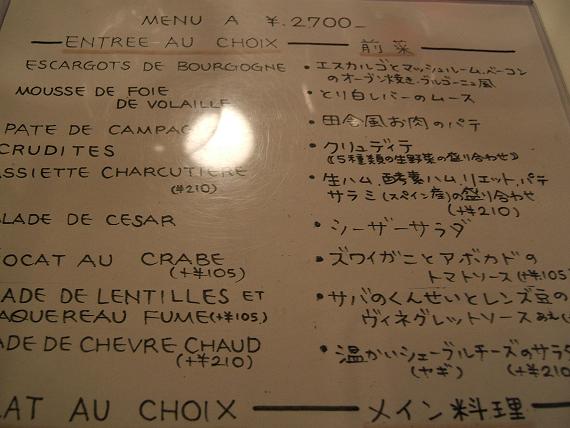 MENU A ¥.2700-
ENTREE AU CHOIX 前菜
ESCARGOTS DE BOURGOGNE ・エスカルゴとマッシュルーム、ベーコン
のオーブン焼き・ブルゴーニュ風
MOUSSE DE FOIE
DE VOLAILLE ・とり白レバーのムース
PATE DE CAMPAG ・田舎風お肉のパテ
CRUDITES ・クリュディテ
《5種類の生野菜の盛り合わせ》
SSIETTE CHARCUTIERE ・生ハム、酵素ハム、リエット、パテ
(¥210) サラミ(スペイン産)の盛り合わせ
(+¥210)
LADE DE CESAR ・シーザーサラダ
OCAT AU CRABE ・ズワイガニとアボカドの
(+¥105) トマトソース(+¥105
ADE DE LENTILLES ET ・サバのくんせいとレンズ豆の
AQUEREAU FUME(+¥105) ヴィネグレットソース
ADE DE CHEVRE CHAUD ・温かいシェーブルチーズのサラダ
(+¥210) (ヤギ) (+¥210
LAT AU CHOIX メイン料理